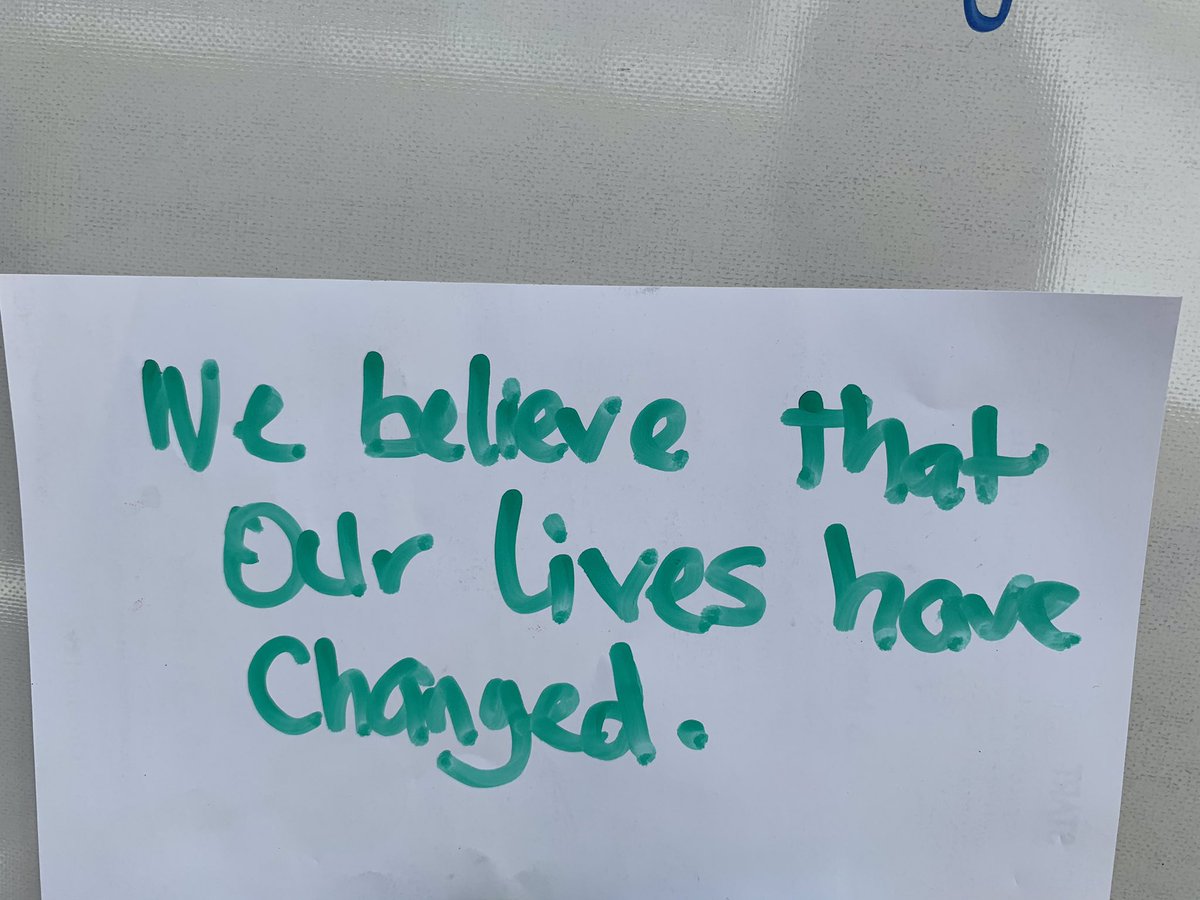 We believe that
Our lives have
Changed.